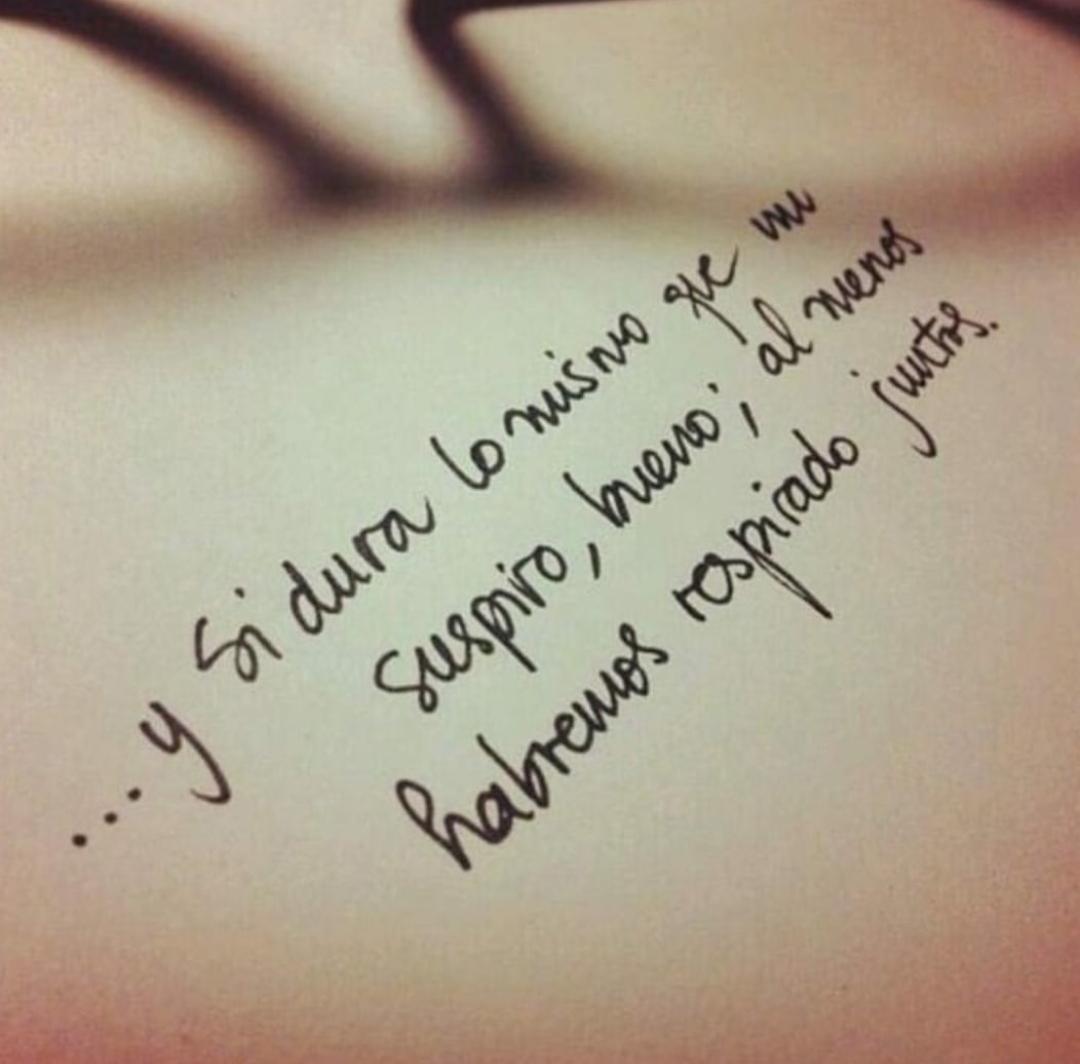 ...y si dura lo mismo que un
suspiro, bueno; al menos
habremos respirado juntos.